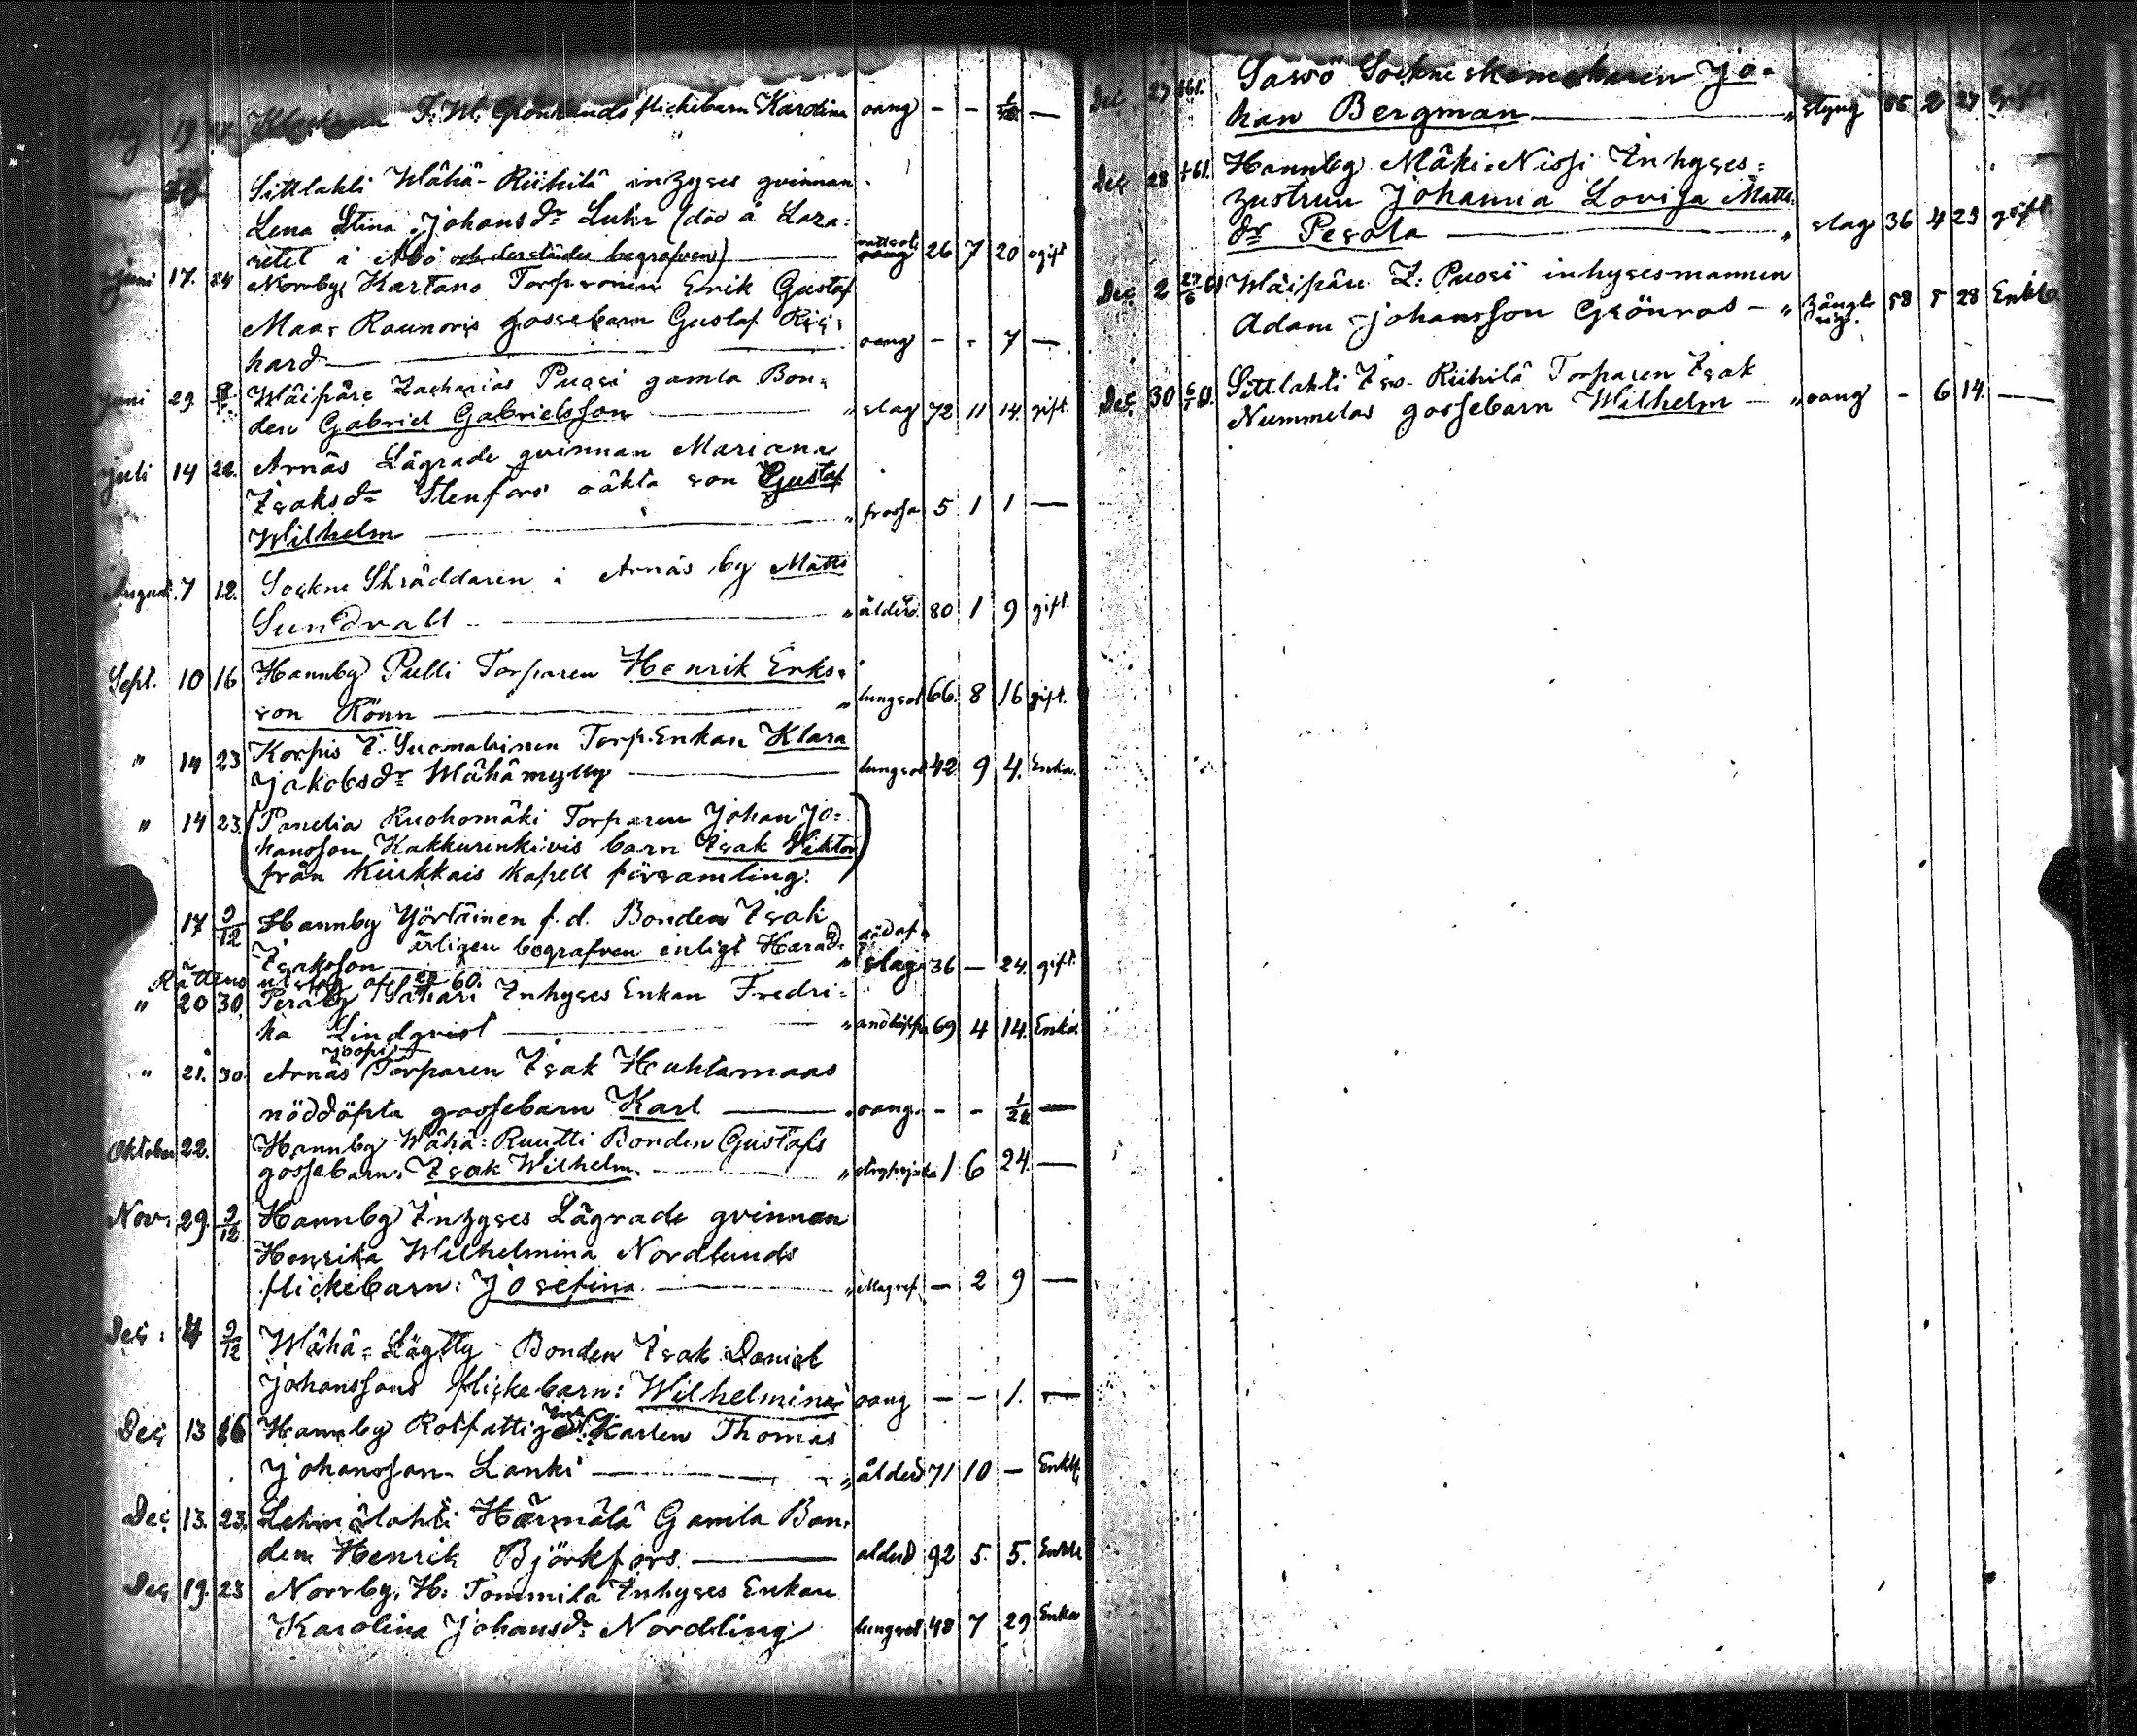 Maj 19 F. W. Grönlunds flickebarn Karolina oang — — —
Sittlahti Wähä-Riihilä inhyses qvinnan
Lena Stina Johansdr Luhr (död å Laza=
retet i Åbo och derstädes begrafven) 26 7 20 ogift
Juni 17. 24 Norrby Kartano Torp Erik Gustaf
gossebarn Gustaf Ri=
hard — oang — - 7 —
Juni 29 Wäipäre Zacharias Puosi gamla Bon=
den Gabriel Gabrielsson — " slag 72 11 14. gift
Juli 14 22. Arnäs Lägrade qvinnan Mariana
Isaksdr Stenfors oäkta son Gustaf
Wilhelm — " frossa 5 1 1 —
August. 7 12. Sockne Skräddaren i Arnäs by Matts
Sundvall — " ålderd. 80 1 9 gift.
Sept. 10 16 Hannby Pelli Torparen Henrik Eriks=
son Rönn — " lungsot 66. 8 16 gift.
" 14 23 Korpis I. Suomalainen Torp.Enkan Klara
Jakobsdr Wähämylly — lungsot 42 9 4. Enka.
" 14 23. (Panelia Ruohomäki Torparen Johan Jo=
hansson Kakkurinkivis barn Isak Viktor)
från Kiukkais Kapell församling.
17 9/12 Hannby Yörtäinen f.d. Bonden Isak
Isaksson ärligen begrafven enligt Härads
" slag 36 — 24. gift.
Rättens utslag af 60.
" 20 30. Peräby Sahari Inhyses Enkan Fredri=
ka Lindqvist — " andtäppa 69 4 14. Enka.
" 21. 30. Arnäs Torparen Isak Huhtamaas
nöddöpta gossebarn Karl — " oang. - - —
Oktober 22. Hannby Wähä=Ruutti Bonden Gustafs
gossebarn: Isak Wilhelm. — " 1 6 24 —
Nov. 29. 9/12 Hannby Inhyses Lägrade qvinnan
Henrika Wilhelmina Nordlunds
flickebarn: Josefina — " — 2 9 —
Dec: 4 9/12 Wähä=Säytty Bonden Isak Daniel
Johanssons flickebarn: Wilhelmina oang — — 1. —
Dec 13 16 Hannby Rotfattig Karlen Thomas
Johansson Lanki — " ålderd 71 10 — Enkl.
Dec. 13. 23. Lehmälahti Härmälä Gamla Bon=
den Henrik Björkfors — ålderd 92 5. 5. Enkl
Dec 19. 23 Norrby. H: Tommila Inhyses Enkan
Karolina Johansdr Nordling lungsot 48 7 29 Enka
Dec 27 Sassö Sockneskomakaren Jo=
han Bergman — " styng 2 27 Gift.
Dec 28 Hannby Mäki=Nissi Inhyses=
hustrun Johanna Lovisa Matts=
dr Pesola — " slag 36 4 23 gift.
Dec. 2 Wäipäre Z. Puosi inhysesmannen
Adam Johansson Grönroos — " 58 5 28 Enkl.
Dec. 30 Sittlahti Iso-Riihilä Torparen Isak
Nummelas gossebarn Wilhelm — " oang - 6 14. —